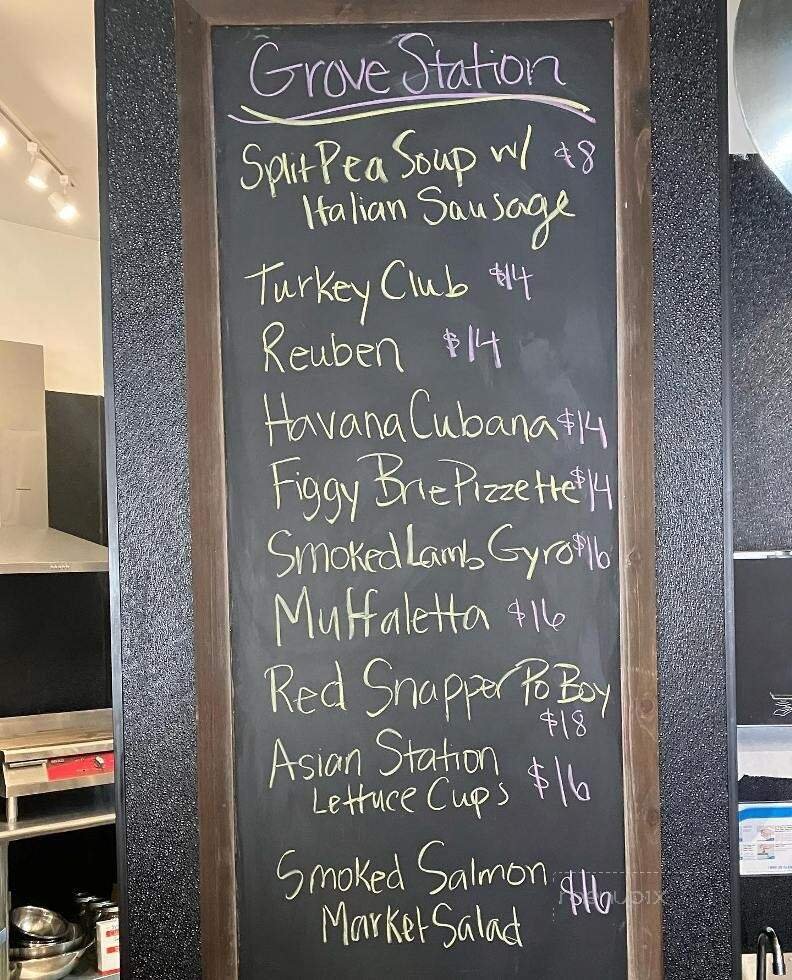 Grove Station
Split Pea Soup w/ $8
Italian Sausage
Turkey Club $14
Reuben $14
Havana Cubana $14
Figgy Brie Pizzette $14
Smoked Lamb Gyro $16
Muffaletta $16
Red Snapper Po Boy
$18
Asian Station
Lettuce Cups $16
Smoked Salmon
Market Salad $16
menupix